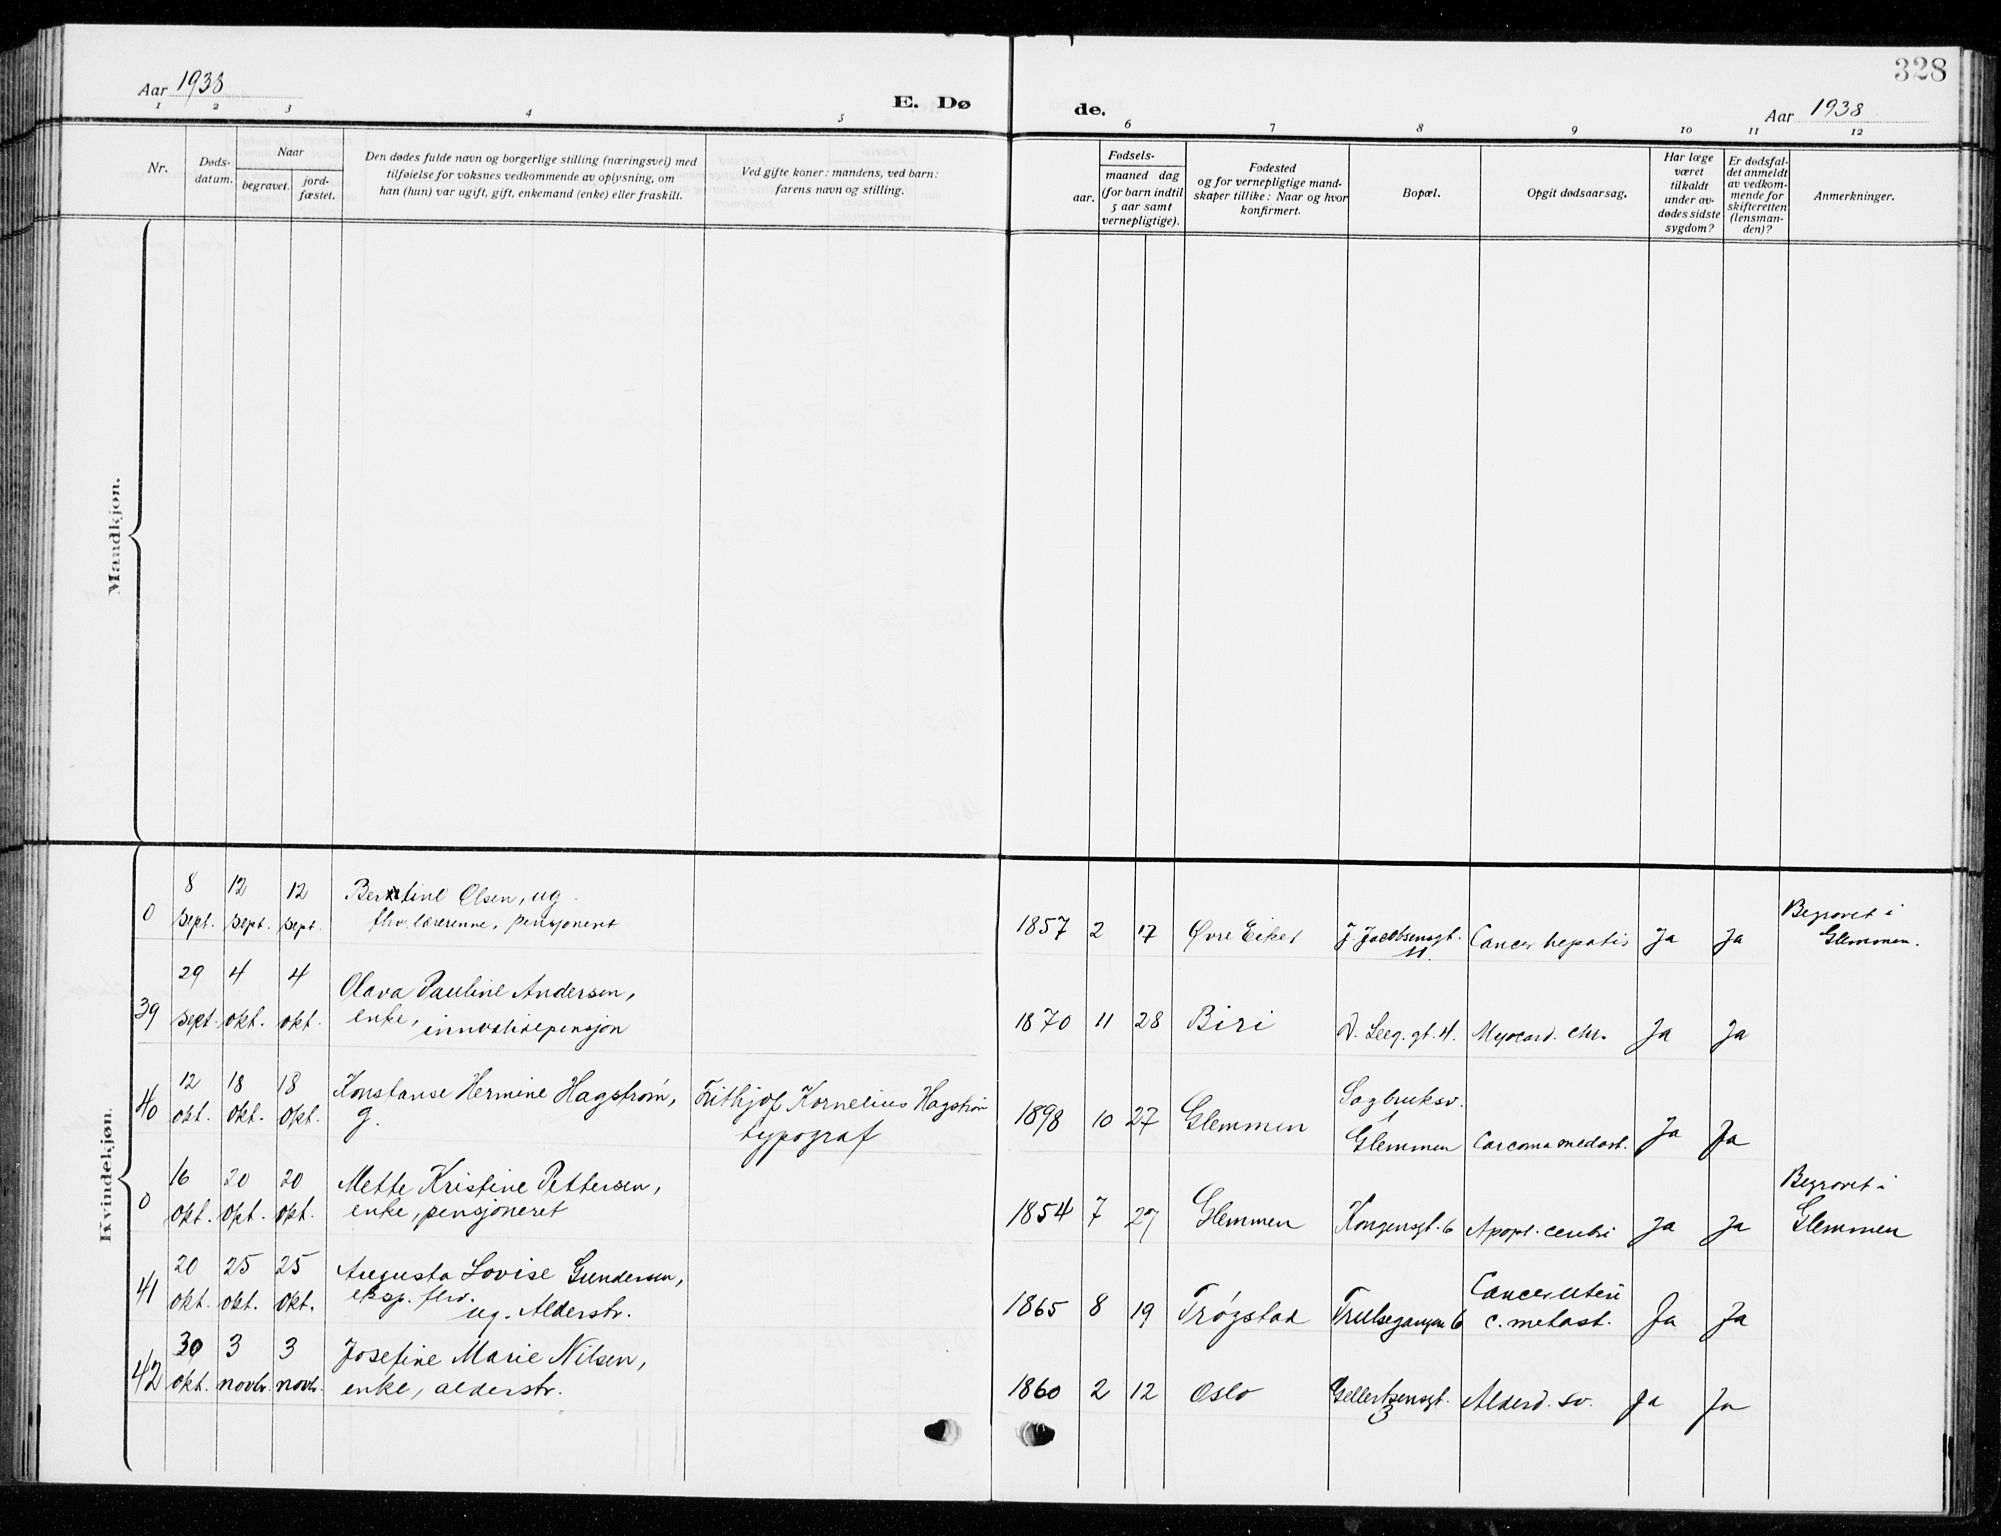 328
Aar 1938
E. Døde.
Aar 1938
1 2 3 4 5 6 7 8 9 10 11 12
Nr.
Døds-
datum.
Naar
begravet.
jord-
fæstet.
Den dødes fulde navn og borgerlige stilling (næringsvei) med
tilføielse for voksnes vedkommende av oplysning, om
han (hun) var ugift, gift, enkemand (enke) eller fraskilt.
Ved gifte koner: mandens, ved barn:
farens navn og stilling.
Fødsels-
aar.
maaned dag
(for barn indtil
5 aar samt
vernepligtige).
Fødested
og for vernepligtige mand-
skaper tillike: Naar og hvor
konfirmert.
Bopæl.
Opgit dødsaarsag.
Har læge
været
tilkaldt
under av-
dødes sidste
sygdom?
Er dødsfal-
det anmeldt
av vedkom-
mende for
skifteretten
(lensman-
den)?
Anmerkninger.
Mandkjøn.
Kvindekjøn.
0 8 sept. 12 sept. 12 sept. Berntine Olsen, ug.
fhv. lærerinne, pensjoneret
1857 2 17 Øvre Eiker J. Jacobsensgt. 11. Cancer hepatis Ja Ja Begravet i
Glemmen.
39 29 sept. 4 okt. 4 okt. Olava Pauline Andersen,
enke, invalidepensjon
1870 11 28 Biri D. Leeg. gt. 4. Myocard. chr. Ja Ja
40 12 okt. 18 okt. 18 okt. Konstanse Hermine Hagstrøm,
g.
Frithjof Kornelius Hagstrøm
typograf
1898 10 27 Glemmen Sagbruksv. 1
Glemmen Ja Ja
0 16 okt. 20 okt. 20 okt. Mette Kristine Pettersen,
enke, pensjoneret
1854 7 27 Glemmen Kongensgt. 6 Apopl. cerebri Ja Ja Begravet i
Glemmen
41 20 okt. 25 okt. 25 okt. Augusta Lovise Gundersen,
eksp. fhv.
ug. Alderstr.
1865 8 19 Trøgstad Trulsegangen 6 Cancer uteri
c. metast. Ja Ja
42 30 okt. 3 novbr. 3 novbr. Josefine Marie Nilsen,
enke, alderstr.
1860 2 12 Oslo Gellertsensgt. 3 Alderd. sv. Ja Ja